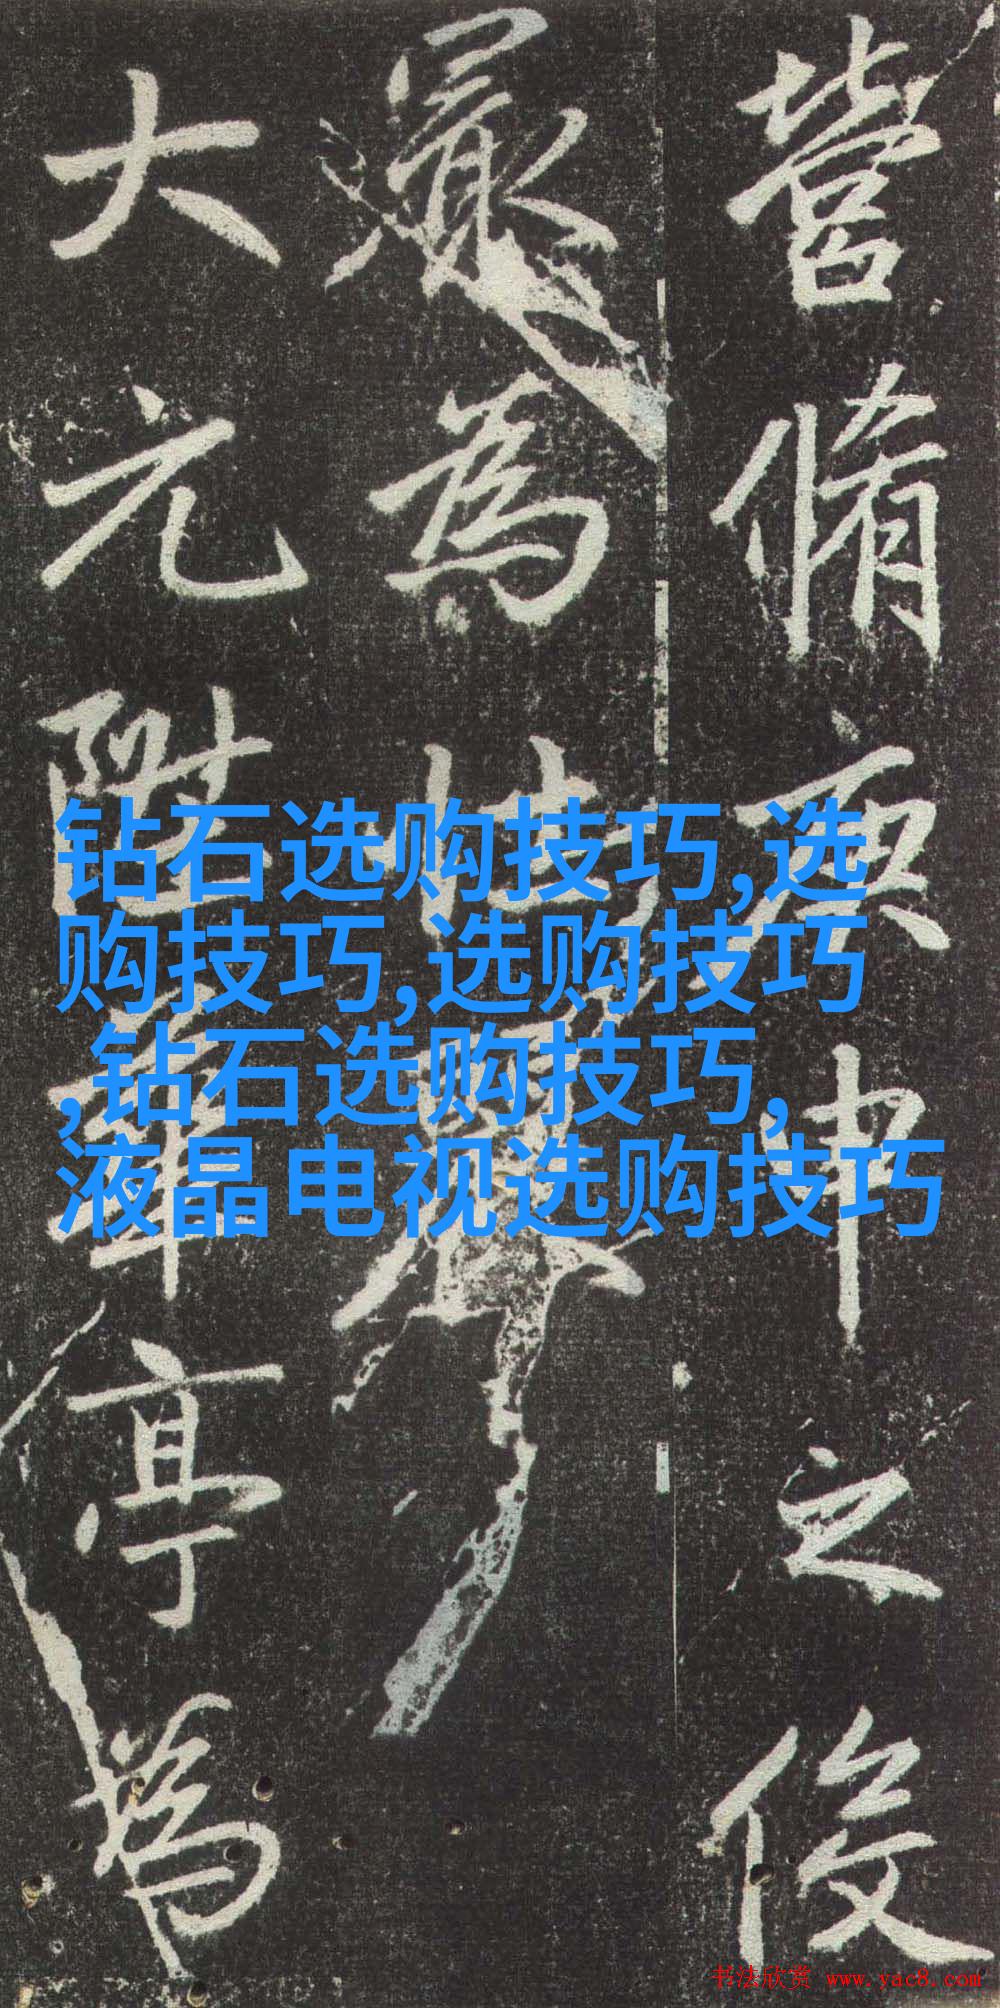 營脩庚申之役
為
大元陞華亭為
钻石选购技巧,选
购技巧,选购技巧
,钻石选购技巧,
液晶电视选购技巧
书法欣赏 www.yac8.com